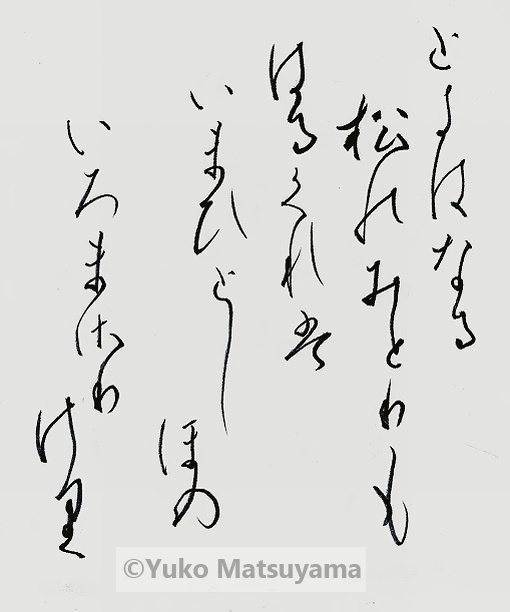 ときはなる
松のみとりも
はるくれは
いまひとしほの
いろまさりけり
©Yuko Matsuyama